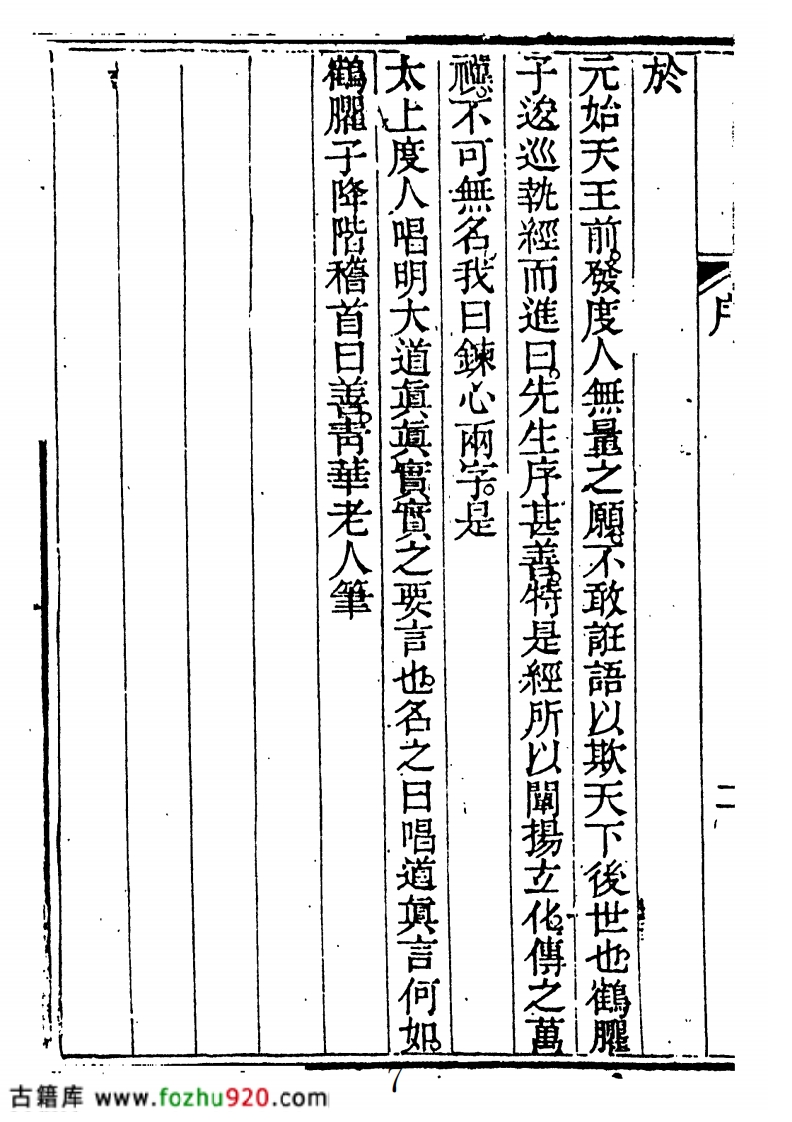 序
二
於
元始天王前。發度人無量之願。不敢誑語以欺天下後世也。鶴臞
子逡巡執經而進曰。先生序甚善。特是經所以闡揚玄化。傳之萬
禩。不可無名。我曰鍊心兩字。是
太上度人唱明大道眞眞實實之要言也。名之曰唱道眞言何如。
鶴臞子降階稽首曰善。靑華老人筆
7
古籍库 www.fozhu920.com